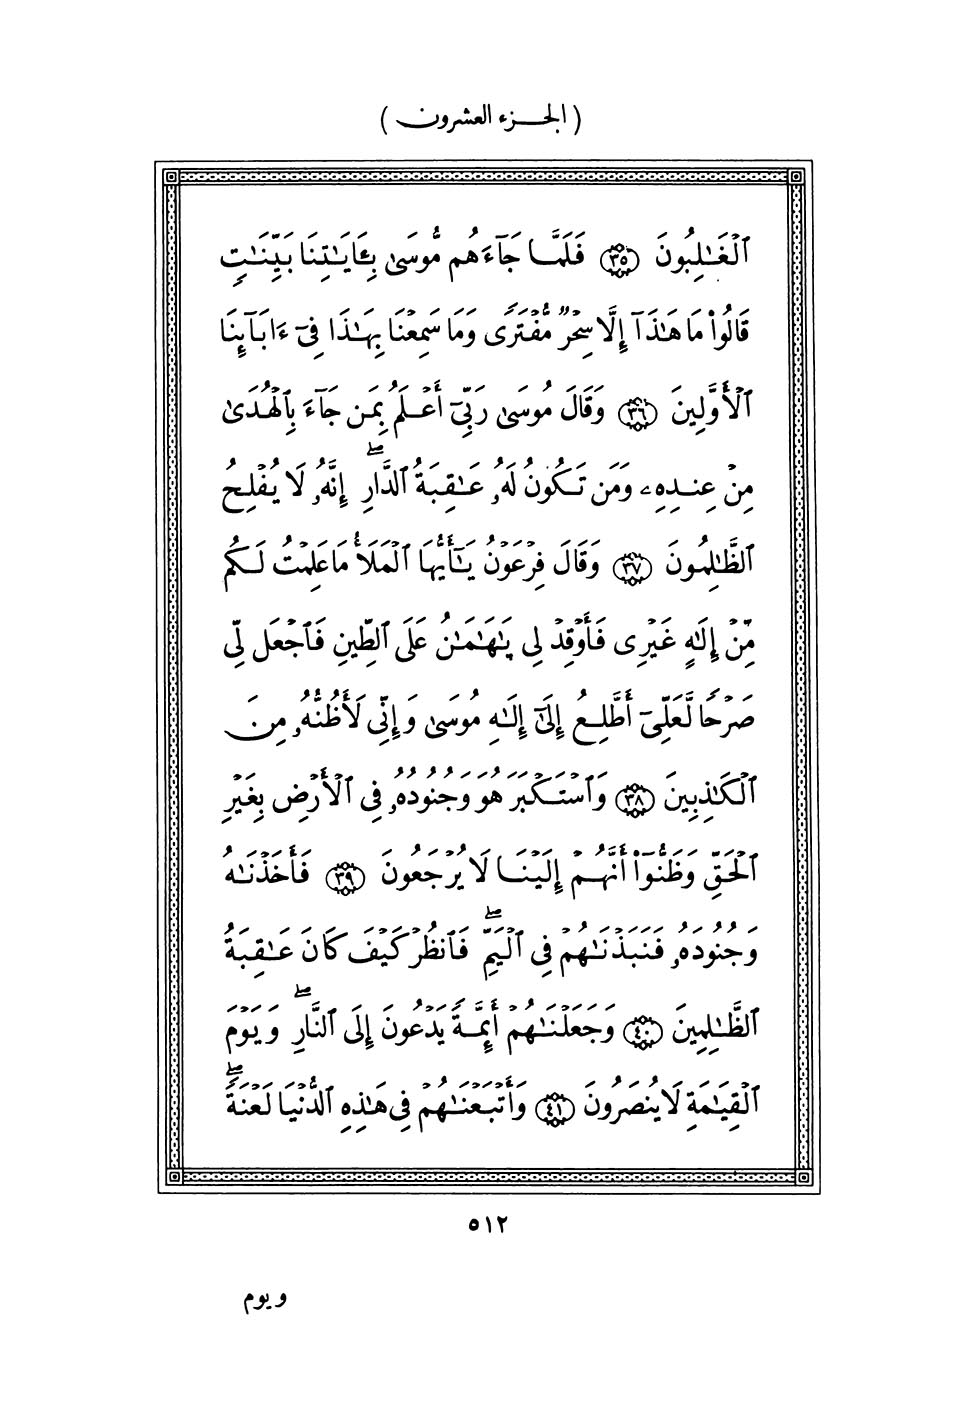 ( الجزء العشرون )
ٱلْغَـٰلِبُونَ ٣٥ فَلَمَّا جَآءَهُم مُّوسَىٰ بِـَٔايَـٰتِنَا بَيِّنَـٰتٍ
قَالُوا۟ مَا هَـٰذَآ إِلَّا سِحْرٌ مُّفْتَرًى وَمَا سَمِعْنَا بِهَـٰذَا فِىٓ ءَابَآئِنَا
ٱلْأَوَّلِينَ ٣٦ وَقَالَ مُوسَىٰ رَبِّىٓ أَعْلَمُ بِمَن جَآءَ بِٱلْهُدَىٰ
مِنْ عِندِهِۦ وَمَن تَكُونُ لَهُۥ عَـٰقِبَةُ ٱلدَّارِ ۖ إِنَّهُۥ لَا يُفْلِحُ
ٱلظَّـٰلِمُونَ ٣٧ وَقَالَ فِرْعَوْنُ يَـٰٓأَيُّهَا ٱلْمَلَأُ مَا عَلِمْتُ لَكُم
مِّنْ إِلَـٰهٍ غَيْرِى فَأَوْقِدْ لِى يَـٰهَـٰمَـٰنُ عَلَى ٱلطِّينِ فَٱجْعَل لِّى
صَرْحًا لَّعَلِّىٓ أَطَّلِعُ إِلَىٰٓ إِلَـٰهِ مُوسَىٰ وَإِنِّى لَأَظُنُّهُۥ مِنَ
ٱلْكَـٰذِبِينَ ٣٨ وَٱسْتَكْبَرَ هُوَ وَجُنُودُهُۥ فِى ٱلْأَرْضِ بِغَيْرِ
ٱلْحَقِّ وَظَنُّوٓا۟ أَنَّهُمْ إِلَيْنَا لَا يُرْجَعُونَ ٣٩ فَأَخَذْنَـٰهُ
وَجُنُودَهُۥ فَنَبَذْنَـٰهُمْ فِى ٱلْيَمِّ ۖ فَٱنظُرْ كَيْفَ كَانَ عَـٰقِبَةُ
ٱلظَّـٰلِمِينَ ٤٠ وَجَعَلْنَـٰهُمْ أَئِمَّةً يَدْعُونَ إِلَى ٱلنَّارِ ۖ وَيَوْمَ
ٱلْقِيَـٰمَةِ لَا يُنصَرُونَ ٤١ وَأَتْبَعْنَـٰهُمْ فِى هَـٰذِهِ ٱلدُّنْيَا لَعْنَةً ۖ
٥١٢
ويوم